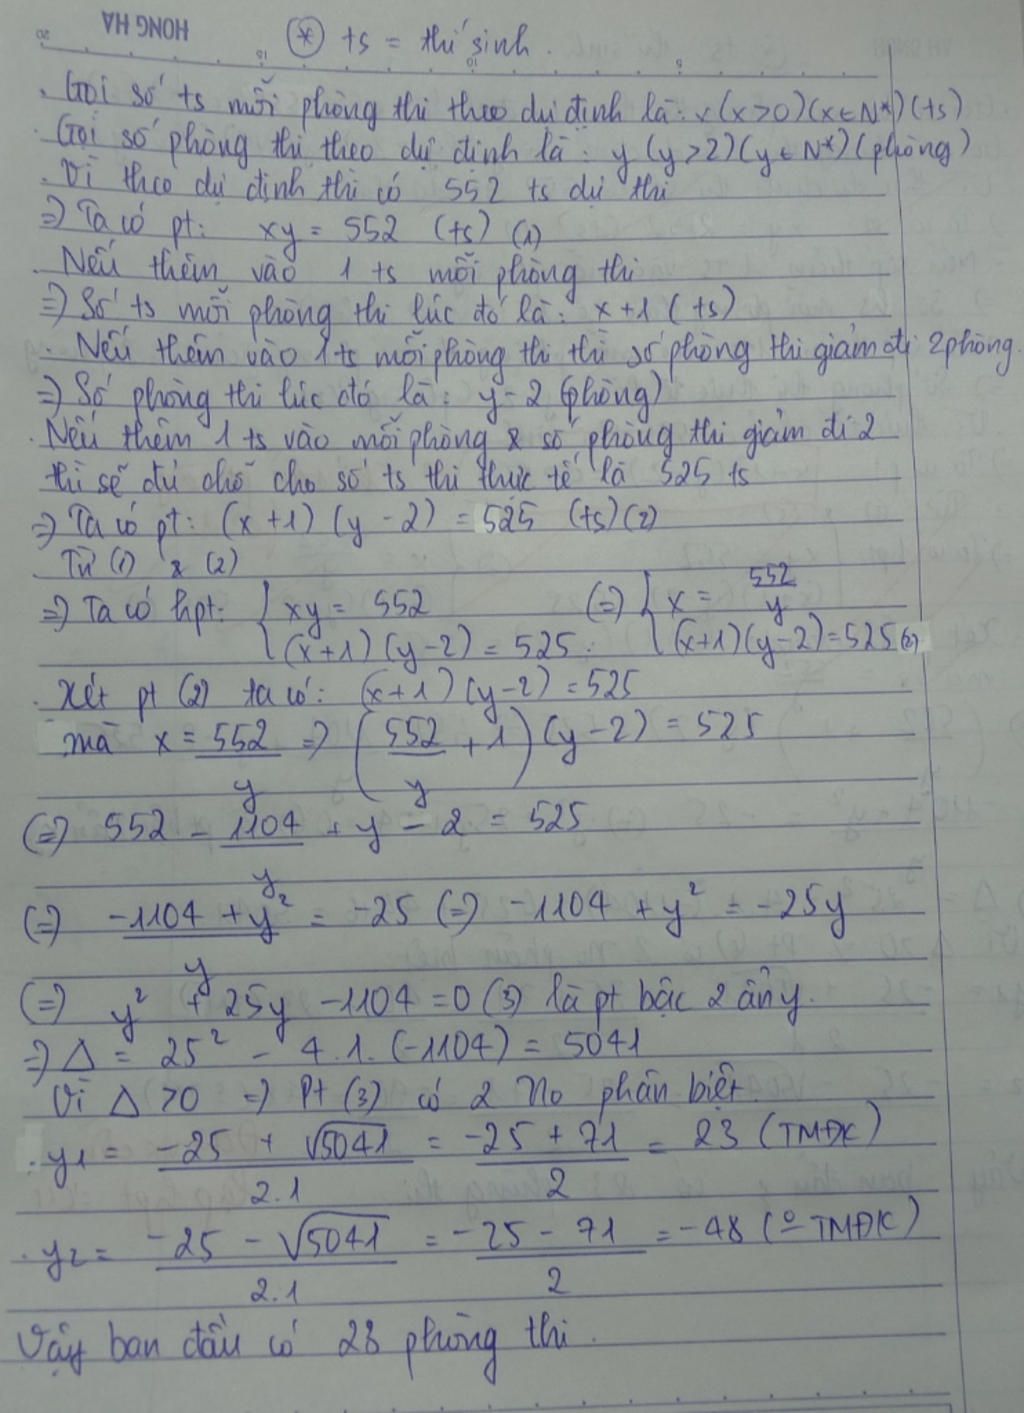 HONG HA
* ts = thí sinh.
. Gọi số ts mỗi phòng thi theo dự định là: x (x>0) (x∈N*) (ts)
. Gọi số phòng thi theo dự định là: y (y>2) (y∈N*) (phòng)
. Vì theo dự định thì có 552 ts dự thi
⇒ Ta có pt: xy = 552 (ts) (1)
. Nếu thêm vào 1 ts mỗi phòng thi
⇒ Số ts mỗi phòng thi lúc đó là: x+1 (ts)
. Nếu thêm vào 1 ts mỗi phòng thi thì số phòng thi giảm đi 2 phòng.
⇒ Số phòng thi lúc đó là: y-2 (phòng)
. Nếu thêm 1 ts vào mỗi phòng & số phòng thi giảm đi 2
thì sẽ đủ chỗ cho số ts thi thực tế là 525 ts
⇒ Ta có pt: (x+1) (y-2) = 525 (ts) (2)
Từ (1) & (2)
⇒ Ta có hpt: { xy = 552 (=) { x = 552/y
(x+1) (y-2) = 525. (x+1)(y-2)=525 (2)
. Xét pt (2) ta có: (x+1) (y-2) = 525
mà x = 552/y ⇒ (552/y + 1) (y-2) = 525
(=) 552 - 1104/y + y - 2 = 525
(=) (-1104 + y²)/y = -25 (=) -1104 + y² = -25y
(=) y² + 25y - 1104 = 0 (3) là pt bậc 2 ẩn y.
⇒ Δ = 25² - 4.1.(-1104) = 5041
Vì Δ > 0 ⇒ Pt (3) có 2 No phân biệt.
. y1 = (-25 + √5041)/2.1 = (-25 + 71)/2 = 23 (TMĐK)
. y2 = (-25 - √5041)/2.1 = (-25 - 71)/2 = -48 (o TMĐK)
Vậy ban đầu có 23 phòng thi.